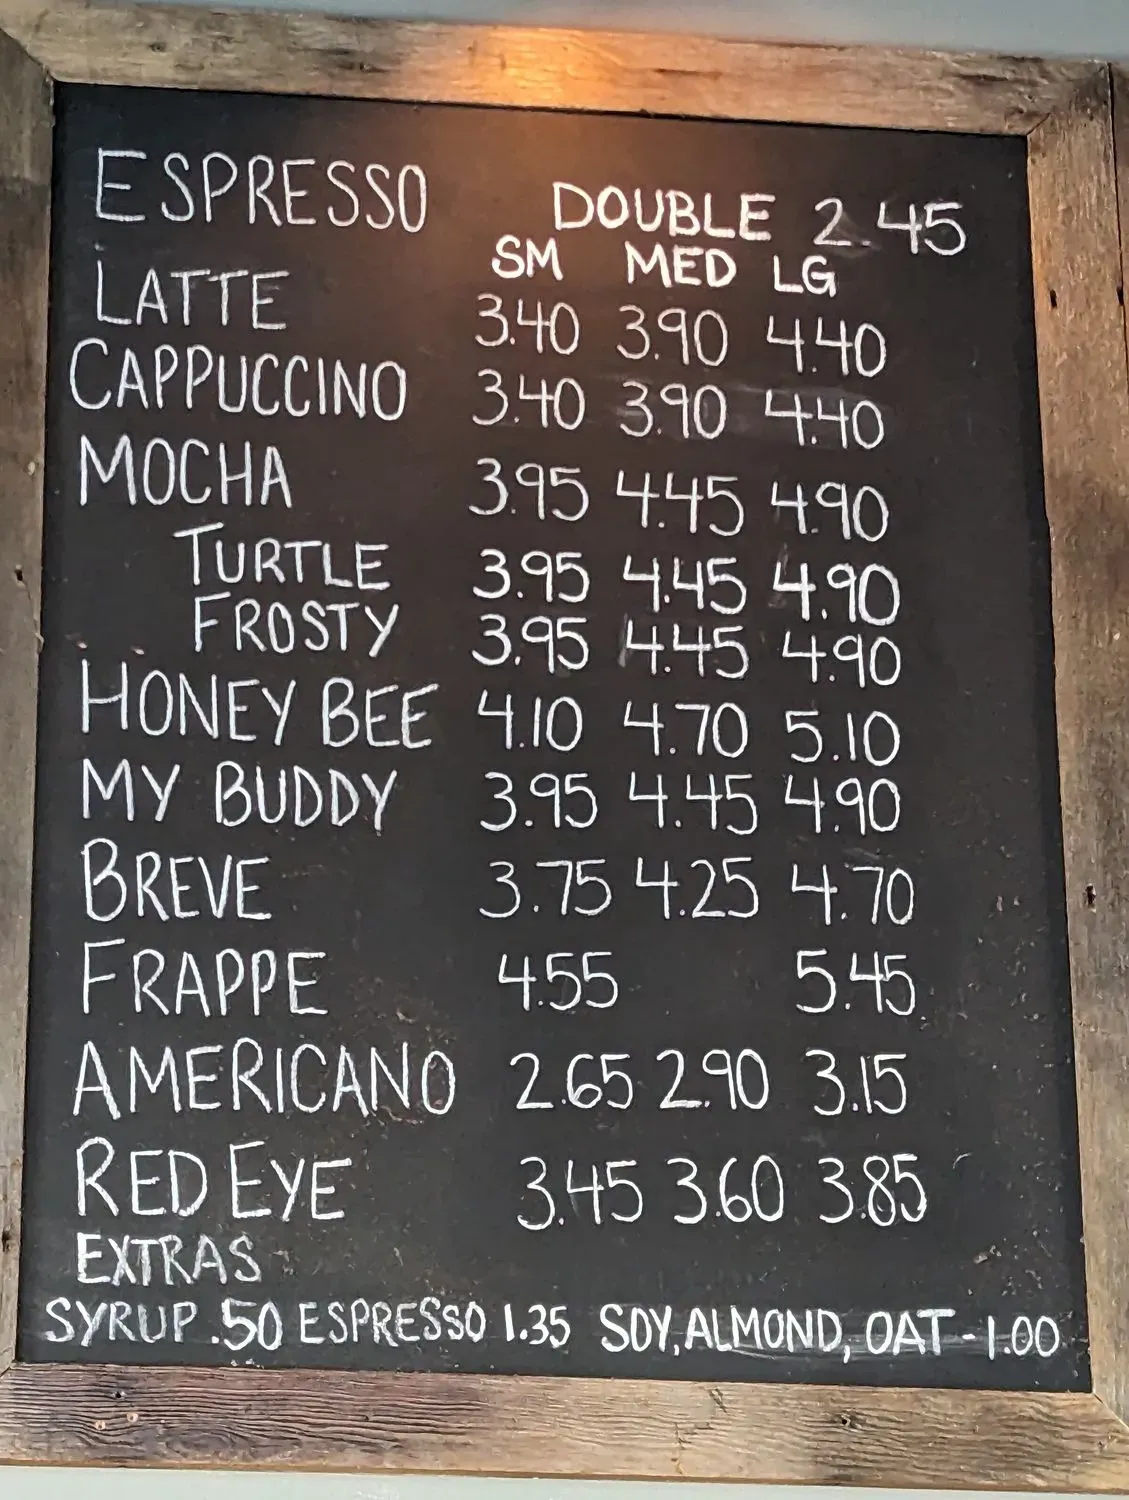 ESPRESSO DOUBLE 2.45
SM MED LG
LATTE 3.40 3.90 4.40
CAPPUCCINO 3.40 3.90 4.40
MOCHA 3.95 4.45 4.90
TURTLE 3.95 4.45 4.90
FROSTY 3.95 4.45 4.90
HONEY BEE 4.10 4.70 5.10
MY BUDDY 3.95 4.45 4.90
BREVE 3.75 4.25 4.70
FRAPPE 4.55 5.45
AMERICANO 2.65 2.90 3.15
RED EYE 3.45 3.60 3.85
EXTRAS
SYRUP .50 ESPRESSO 1.35 SOY, ALMOND, OAT - 1.00